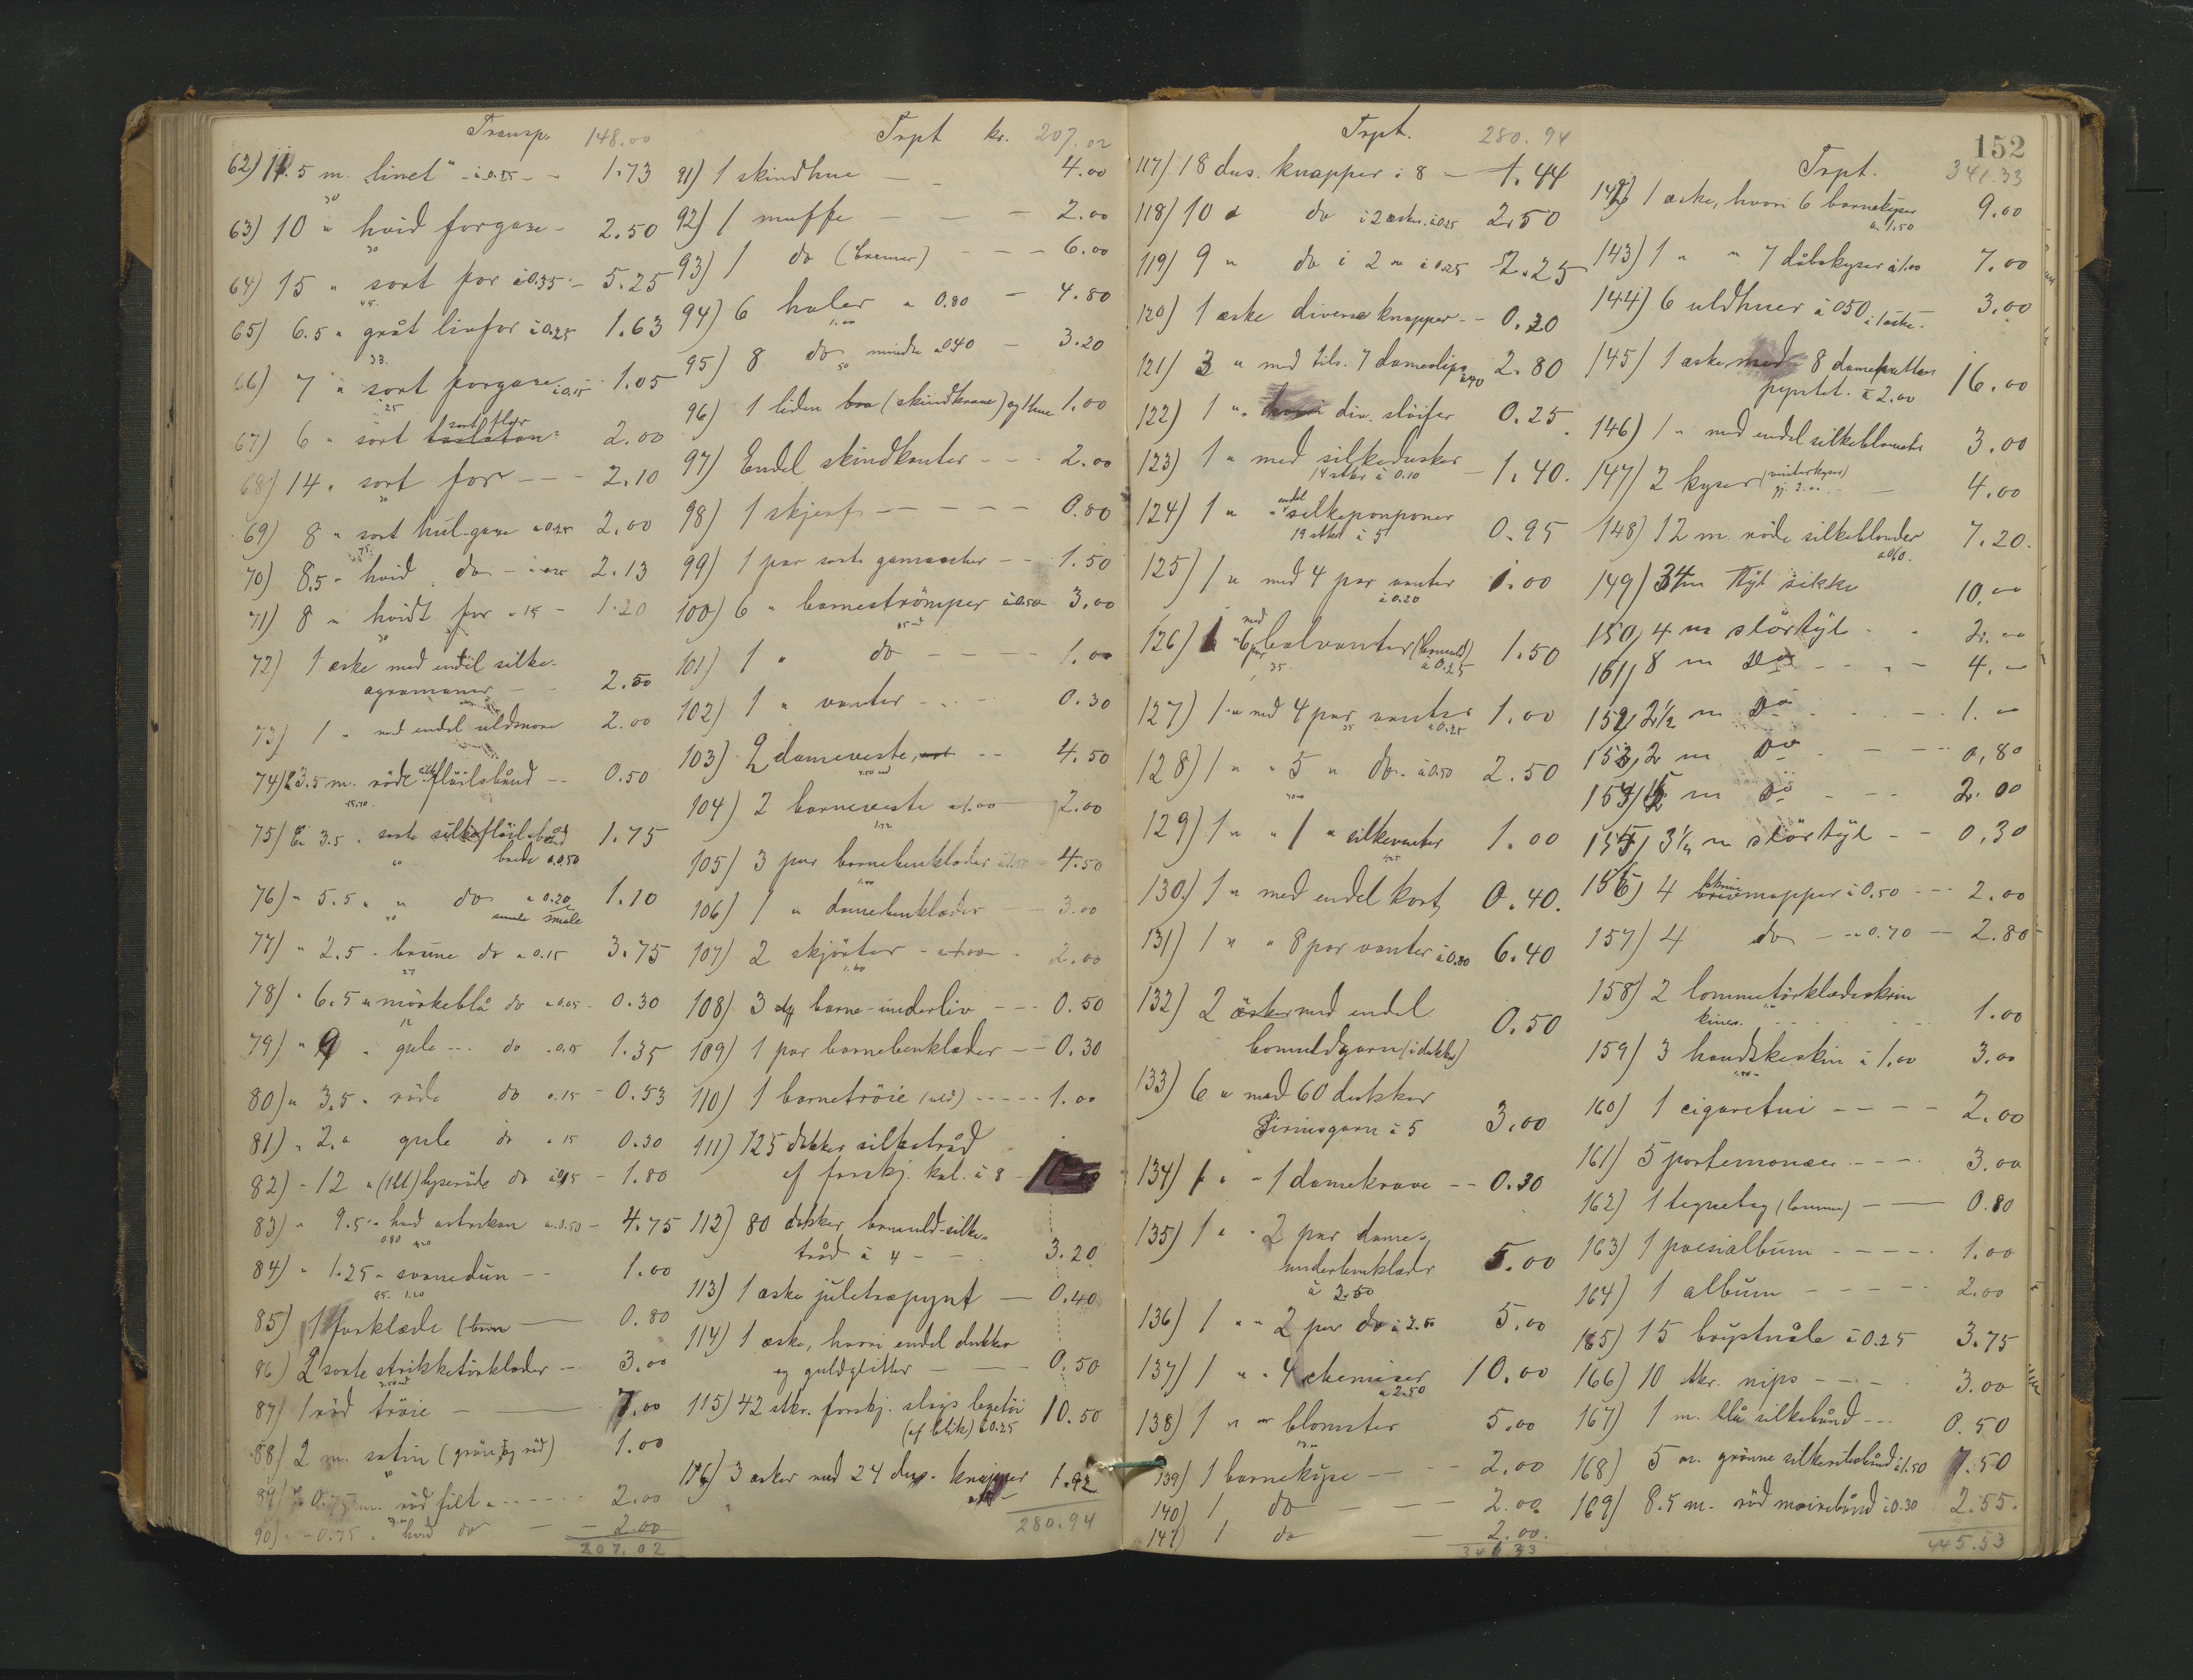 Transp. 148.00
62) 11.5 m. linet" - à 0.15 - - 1.73
63) 10 " hvid forgaze - 2.50
64) 15 " sort for à 0.35 - 5.25
65) 6.5 " gråt livfor à 0.25 1.63
66) 7 " sort forgaze à 0.15 1.05
67) 6 " sort sort flor 2.00
68) 14 " sort for - - - 2.10
69) 8 " sort hul-gaze à 0.25 2.00
70) 8.5 " hvid do - à 0.25 2.13
71) 8 " hvidt for à 15 - 1.20
72) 1 æske med endel silke-
agramaner - - 2.50
73) 1 " med endel uldsnore 2.00
74) 3.5 m. röde silkeflöilsbånd - - 0.50
75) 3.5 " sorte silkeflöilsbånd 1.75
brede à 0.50
76) " 5.5 " " do à 0.20 1.10
smale
77) " 2.5 " brune do à 0.15 3.75
78) " 6.5 " mörkeblå do à 0.05 - 0.30
79) " 9 " gule - - - do à 0.15 1.35
80) " 3.5 " röde do à 15 - 0.53
81) " 2 " gule do à 15 0.30
82) - 12 " lyseröde do à 0.15 - 1.80
83) " 9.5 " hvid astrakan à 0.50 - 4.75
84) " 1.25 " svanedun - - 1.00
85) 1 forklæde (barn 0.80
86) 2 sorte strikketörklæder - 3.00
87) 1 röd tröie - 7.00
88) 2 m. satin (grön og röd) 1.00
89) 0.75 m. röd filt " - - - 2.00
90) " - 0.75 " hvid do - - 2.00
207.02
Trpt kr. 207.02
91) 1 skindhue - - 4.00
92) 1 muffe - - - 2.00
93) 1 do (bremer) - - - 6.00
94) 6 haler à 0.80 - 4.80
95) 8 do mindre à 0.40 - 3.20
96) 1 liden boa (skindkrave) og 1 hue 1.00
97) Endel skindkanter - - - 2.00
98) 1 skjerf - - - - - 0.80
99) 1 par sorte gamascher - - 1.50
100) 6 " barneströmper à 0.50 3.00
101) 1 " do - - - - 1.00
102) 1 " vanter - - - 0.30
103) 2 dameveste, - - 4.50
104) 2 barneveste à 1.00 2.00
105) 3 par barnebenklæder à 1.50 - 4.50
106) 1 " damebenklæder - - 3.00
107) 2 skjörter - à 1.00 - 2.00
108) 3 barne-underliv - - - 0.50
109) 1 par barnebenklæder - - 0.30
110) 1 barnetröie (uld) - - - - - 1.00
111) 125 dukker silketråd
af forskj. kul. à 8 - 10.00
112) 80 dukker, bomuld-silke-
tråd à 4 - - 3.20
113) 1 æske juletræpynt - 0.40
114) 1 æske, hvori endel dukker
og guldglitter - - - 0.50
115) 42 stkr. forskj. slags legetöi
(af blik) à 0.25 10.50
116) 3 æsker med 24 dus. knapper 1.92
280.94
Trpt. 280.94
117) 18 dus. knapper à 8 - 1.44
118) 10 " do i 2 æsker à 0.25 2.50
119) 9 " do i 2 " à 0.25 2.25
120) 1 æske diverse knapper - - 0.20
121) 3 " med tils. 7 dameslips à 40 2.80
122) 1 " div. slöifer 0.25
123) 1 " med silkedusker
14 stkr à 0.10 - 1.40.
124) 1 " endel silkeponponer
19 stkr à 5 0.95
125) 1 " med 4 par vanter
à 0.20 1.00
126) 1 " med 6 par balvanter (bomuld)
à 0.25 1.50
127) 1 " med 4 par vanter à 0.25 1.00
128) 1 " " 5 " do. à 0.50 2.50
129) 1 " " 1 " silkevanter 1.00
130) 1 " med endel kort 0.40.
131) 1 " " 8 par vanter à 0.80 6.40
132) 2 æsker med endel
bomuldgarn (i dukker) 0.50
133) 6 " med 60 dukker
Firnisgarn à 5 3.00
134) 1 " - 1 damekrave - - 0.30
135) 1 " - 2 par dame-
underbenklæder
à 2.50 5.00
136) 1 " " 2 par do à 2.50 5.00
137) 1 " " 4 chemiser à 2.50 10.00
138) 1 " " blomster 5.00
139) 1 barnekyse - - - 2.00
140) 1 do - - - 2.00
141) 1 do - 2.00.
341.33
152
Trpt. 341.33
142) 1 æske, hvori 6 barnekyser
à 1.50 9.00
143) 1 " " 7 dåbskyser à 1.00 7.00
144) 6 uldhuer à 0.50 i 1 æske. 3.00
145) 1 æske med 8 damehatter
pyntet. à 2.00 16.00
146) 1 " med endel silkeblomster 3.00
147) 2 kyser (vinterkyser) - 4.00
148) 12 m. röde silkeblonder
à 0.60. 7.20.
149) 34 m Tyl sikke 10,00
150) 4 m slörtyl - - 2.00
151) 8 m Do - - - - 4.-
152) 2 1/2 m Do - - - 1.-
153) 2 m Do - - - - 0,80
154) 5 m Do - - - 2.00
155) 3 1/4 m slörtyl - - 0,30
156) 4 skrivemapper à 0.50 - - - 2.00
157) 4 do - - à 0.70 - 2.80
158) 2 lommetörklædeskrin
kines. - - - - 1.00
159) 3 handskeskrin à 1.00 3.00
160) 1 cigaretui - - - - 2.00
161) 5 portemonæer - - - - 3.00
162) 1 tegnebog (lomme) - - 0.80
163) 1 poesialbum - - - - - 1.00
164) 1 album - - - - - 2.00
165) 15 brystnåle à 0.25 3.75
166) 10 stkr. nips - - - - 3.00
167) 1 m. blå silkebånd - - - 0.50
168) 5 m. grönne silkesilkebånd à 1.50 7.50
169) 8.5 m. röd moirebånd à 0.30 2.55.
445.53